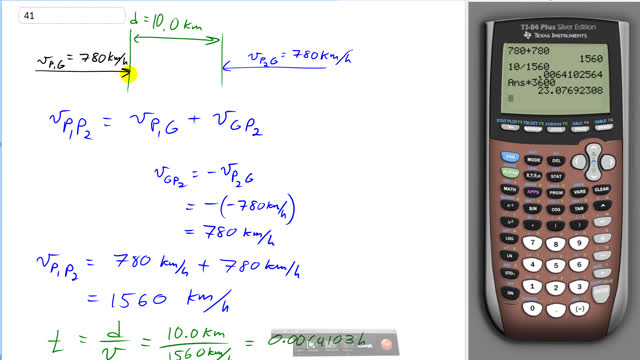 41
d = 10.0 km
v_P₁G = 780 km/h
v_P₂G = 780 km/h
v_P₁P₂ = v_P₁G + v_GP₂
v_GP₂ = -v_P₂G
= -(-780 km/h)
= 780 km/h
v_P₁P₂ = 780 km/h + 780 km/h
= 1560 km/h
t = d/v = 10.0 km/1560 km/h = 0.0064103 h
TI-84 Plus Silver Edition
TEXAS INSTRUMENTS
780+780
1560
10/1560
.0064102564
Ans*3600
23.07692308
STAT PLOT F1 TBLSET F2 FORMAT F3 CALC F4 TABLE F5
2ND
MODE
DEL
ALPHA
X,T,θ,n
STAT
MATH
APPS
PRGM
VARS
CLEAR
x⁻¹
SIN
COS
TAN
^
x²
,
(
)
÷
LOG
7
8
9
×
LN
4
5
6
−
STO▸
1
2
3
+
ON
0
.
(−)